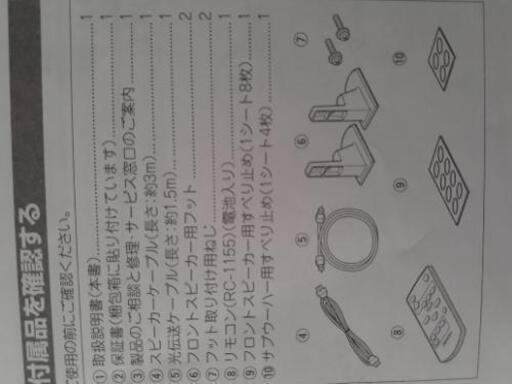 付属品を確認する
ご使用の前にご確認ください。
① 取扱説明書(本書)……1
② 保証書(梱包箱に貼り付けています)……1
③ 製品のご相談と修理・サービス窓口のご案内……1
④ スピーカーケーブル(長さ:約3m)……1
⑤ 光伝送ケーブル(長さ:約1.5m)……1
⑥ フロントスピーカー用フット……2
⑦ フット取り付け用ねじ……2
⑧ リモコン(RC-1155)(電池入り)……1
⑨ フロントスピーカー用すべり止め(1シート8枚)……1
⑩ サブウーハー用すべり止め(1シート4枚)……1
④
⑤
⑥
⑦
⑧
⑨
⑩